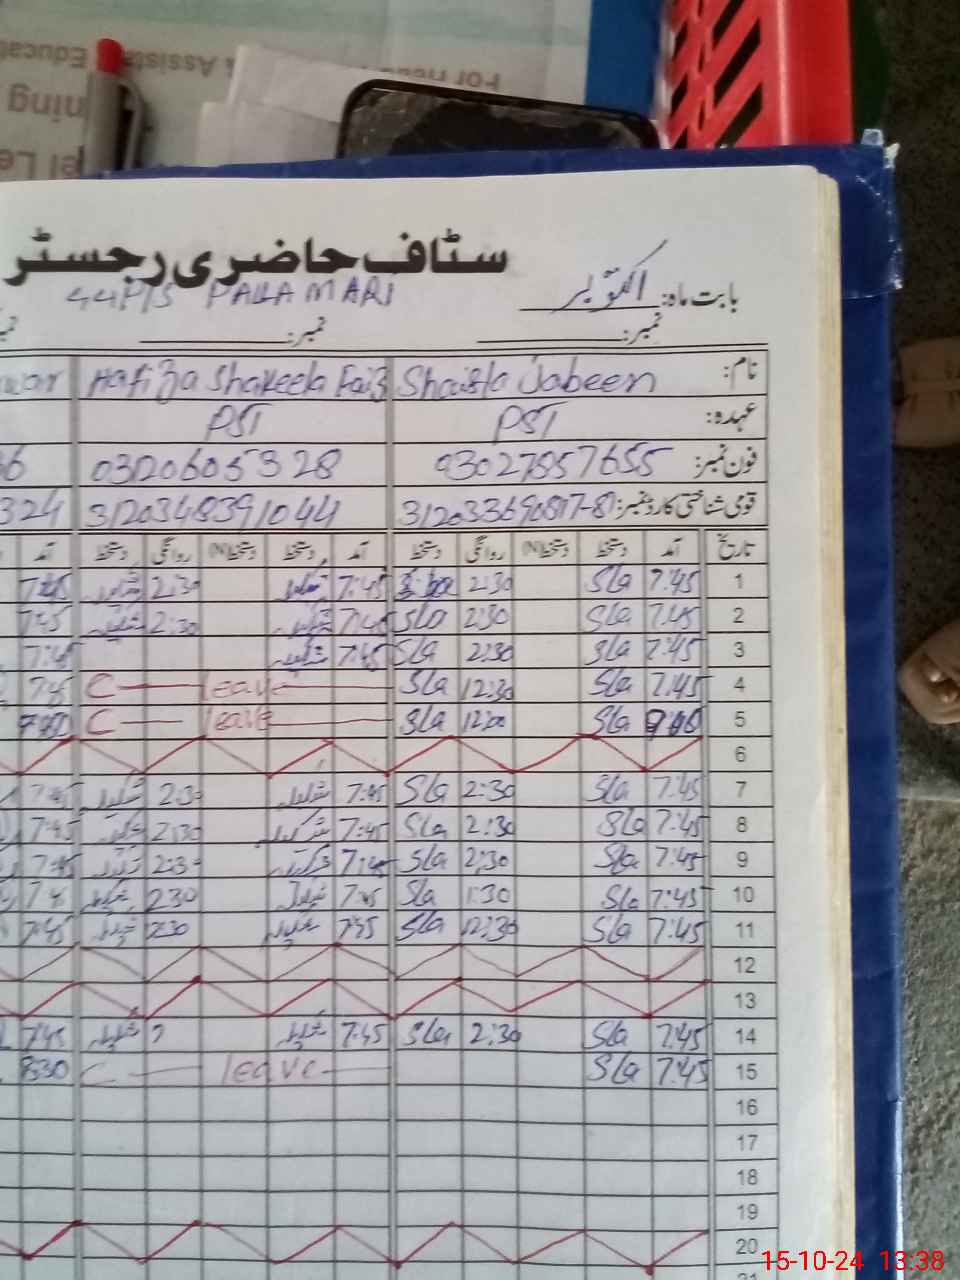 For Head
Assista
Educa
ning
el Le
سٹاف حاضری رجسٹر
بابت ماہ: اکتوبر
PALLA MARI
نمبر: نمبر:
نام: Shaista Jabeen Hafiza Shakeela Faiz
عہدہ: PST PST
فون نمبر: 03027857655 03206053328
قومی شناختی کارڈ نمبر: 3120348391044 324
تاریخ آمد دستخط دستخط(N) روانگی دستخط آمد دستخط دستخط(N) روانگی دستخط آمد
1 7:45 Sla 2:30 7:45 شکیلہ 2:30 شکیلہ 7:45
2 7:45 Sla 2:30 7:45 شکیلہ 2:30 شکیلہ 7:45
3 7:45 Sla 2:30 Sla 7:45 شکیلہ 7:45
4 7:45 Sla 12:30 Sla C leave 7:45
5 Sla 12:00 Sla C leave
6
7 7:45 Sla 2:30 Sla 7:45 شکیلہ 2:30 شکیلہ 7:45
8 7:45 Sla 2:30 Sla 7:45 شکیلہ 2:30 شکیلہ 7:45
9 7:45 Sla 2:30 Sla 7:45 شکیلہ 2:30 شکیلہ 7:45
10 7:45 Sla 1:30 Sla 7:45 شکیلہ 2:30 شکیلہ 7:45
11 7:45 Sla 12:30 Sla 7:45 شکیلہ شکیلہ 7:45
12
13
14 7:45 Sla 2:30 Sla 7:45 شکیلہ شکیلہ 7:45
15 7:45 Sla C leave 8:30
16
17
18
19
20
15-10-24 13:38